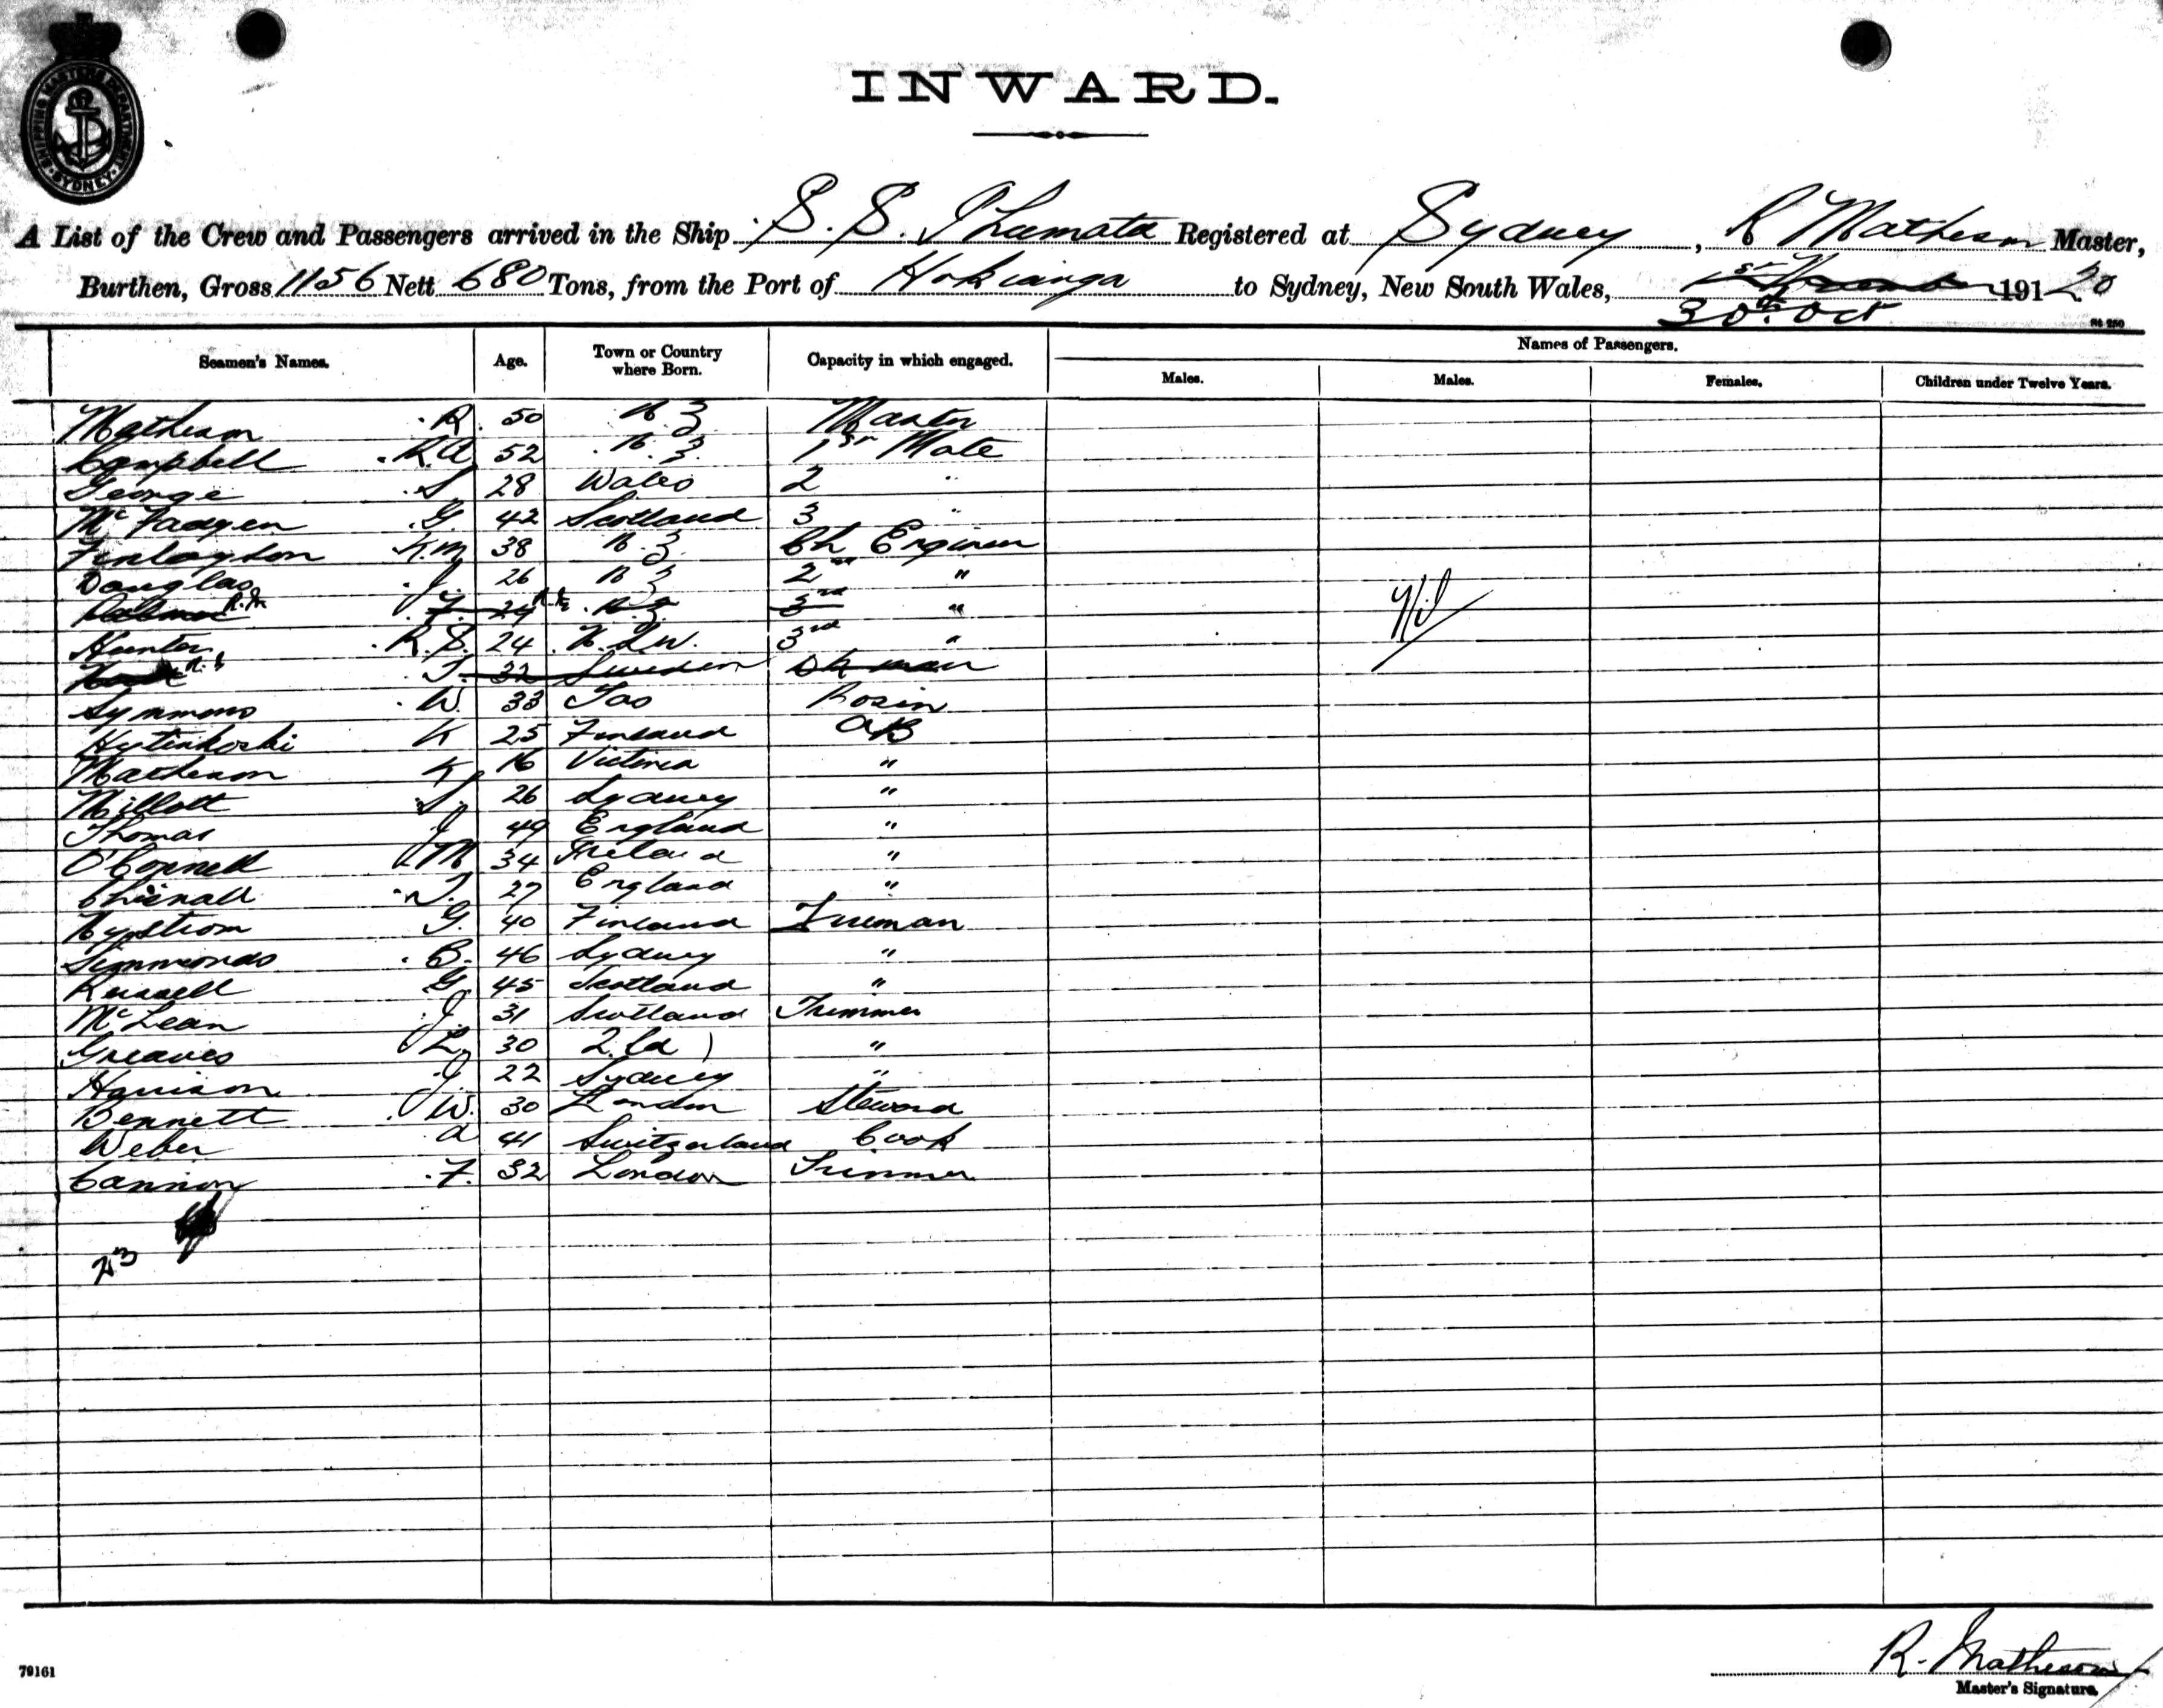 SHIPPING MASTER'S DEPARTMENT
SYDNEY
INWARD.
A List of the Crew and Passengers arrived in the Ship S.S. Registered at Sydney, R Matheson Master,
Burthen, Gross 1156 Nett 680 Tons, from the Port of Hokianga to Sydney, New South Wales, 1st 191 20
30th Oct
Seamen's Names. Age. Town or Country where Born. Capacity in which engaged. Names of Passengers.
Males. Males. Females. Children under Twelve Years.
Matheson R. 50 N.Z Master
Campbell R.A 52 N.Z. 1st Mate
George S 28 Wales 2 "
McFadgen G. 42 Scotland 3 "
Finlayson K.M 38 N.Z. Ch Engineer
Douglas J 26 N Z 2nd "
F. 24 N.Z. 3rd "
Nil
Hunter R.S. 24 N.S.W. 3rd "
T. 32 Sweden
Symmons W. 33 Tas Bosin
Hytinkoski K 25 Finland AB
Matheson K. 16 Victoria "
Millott S. 26 Sydney "
Thomas J 49 England "
O'Connell M 34 Ireland "
Chisnall T. 27 England "
Nystrom G. 40 Finland Fireman
Simmonds B. 46 Sydney "
Russell G. 45 Scotland "
McLean J. 31 Scotland Trimmer
Greaves L. 30 "
Harrison J. 22 Sydney "
Bennett W. 30 London Steward
Weber A 41 Switzerland Cook
Cannon F. 32 London Trimmer
23
R. Matheson
Master's Signature
79161